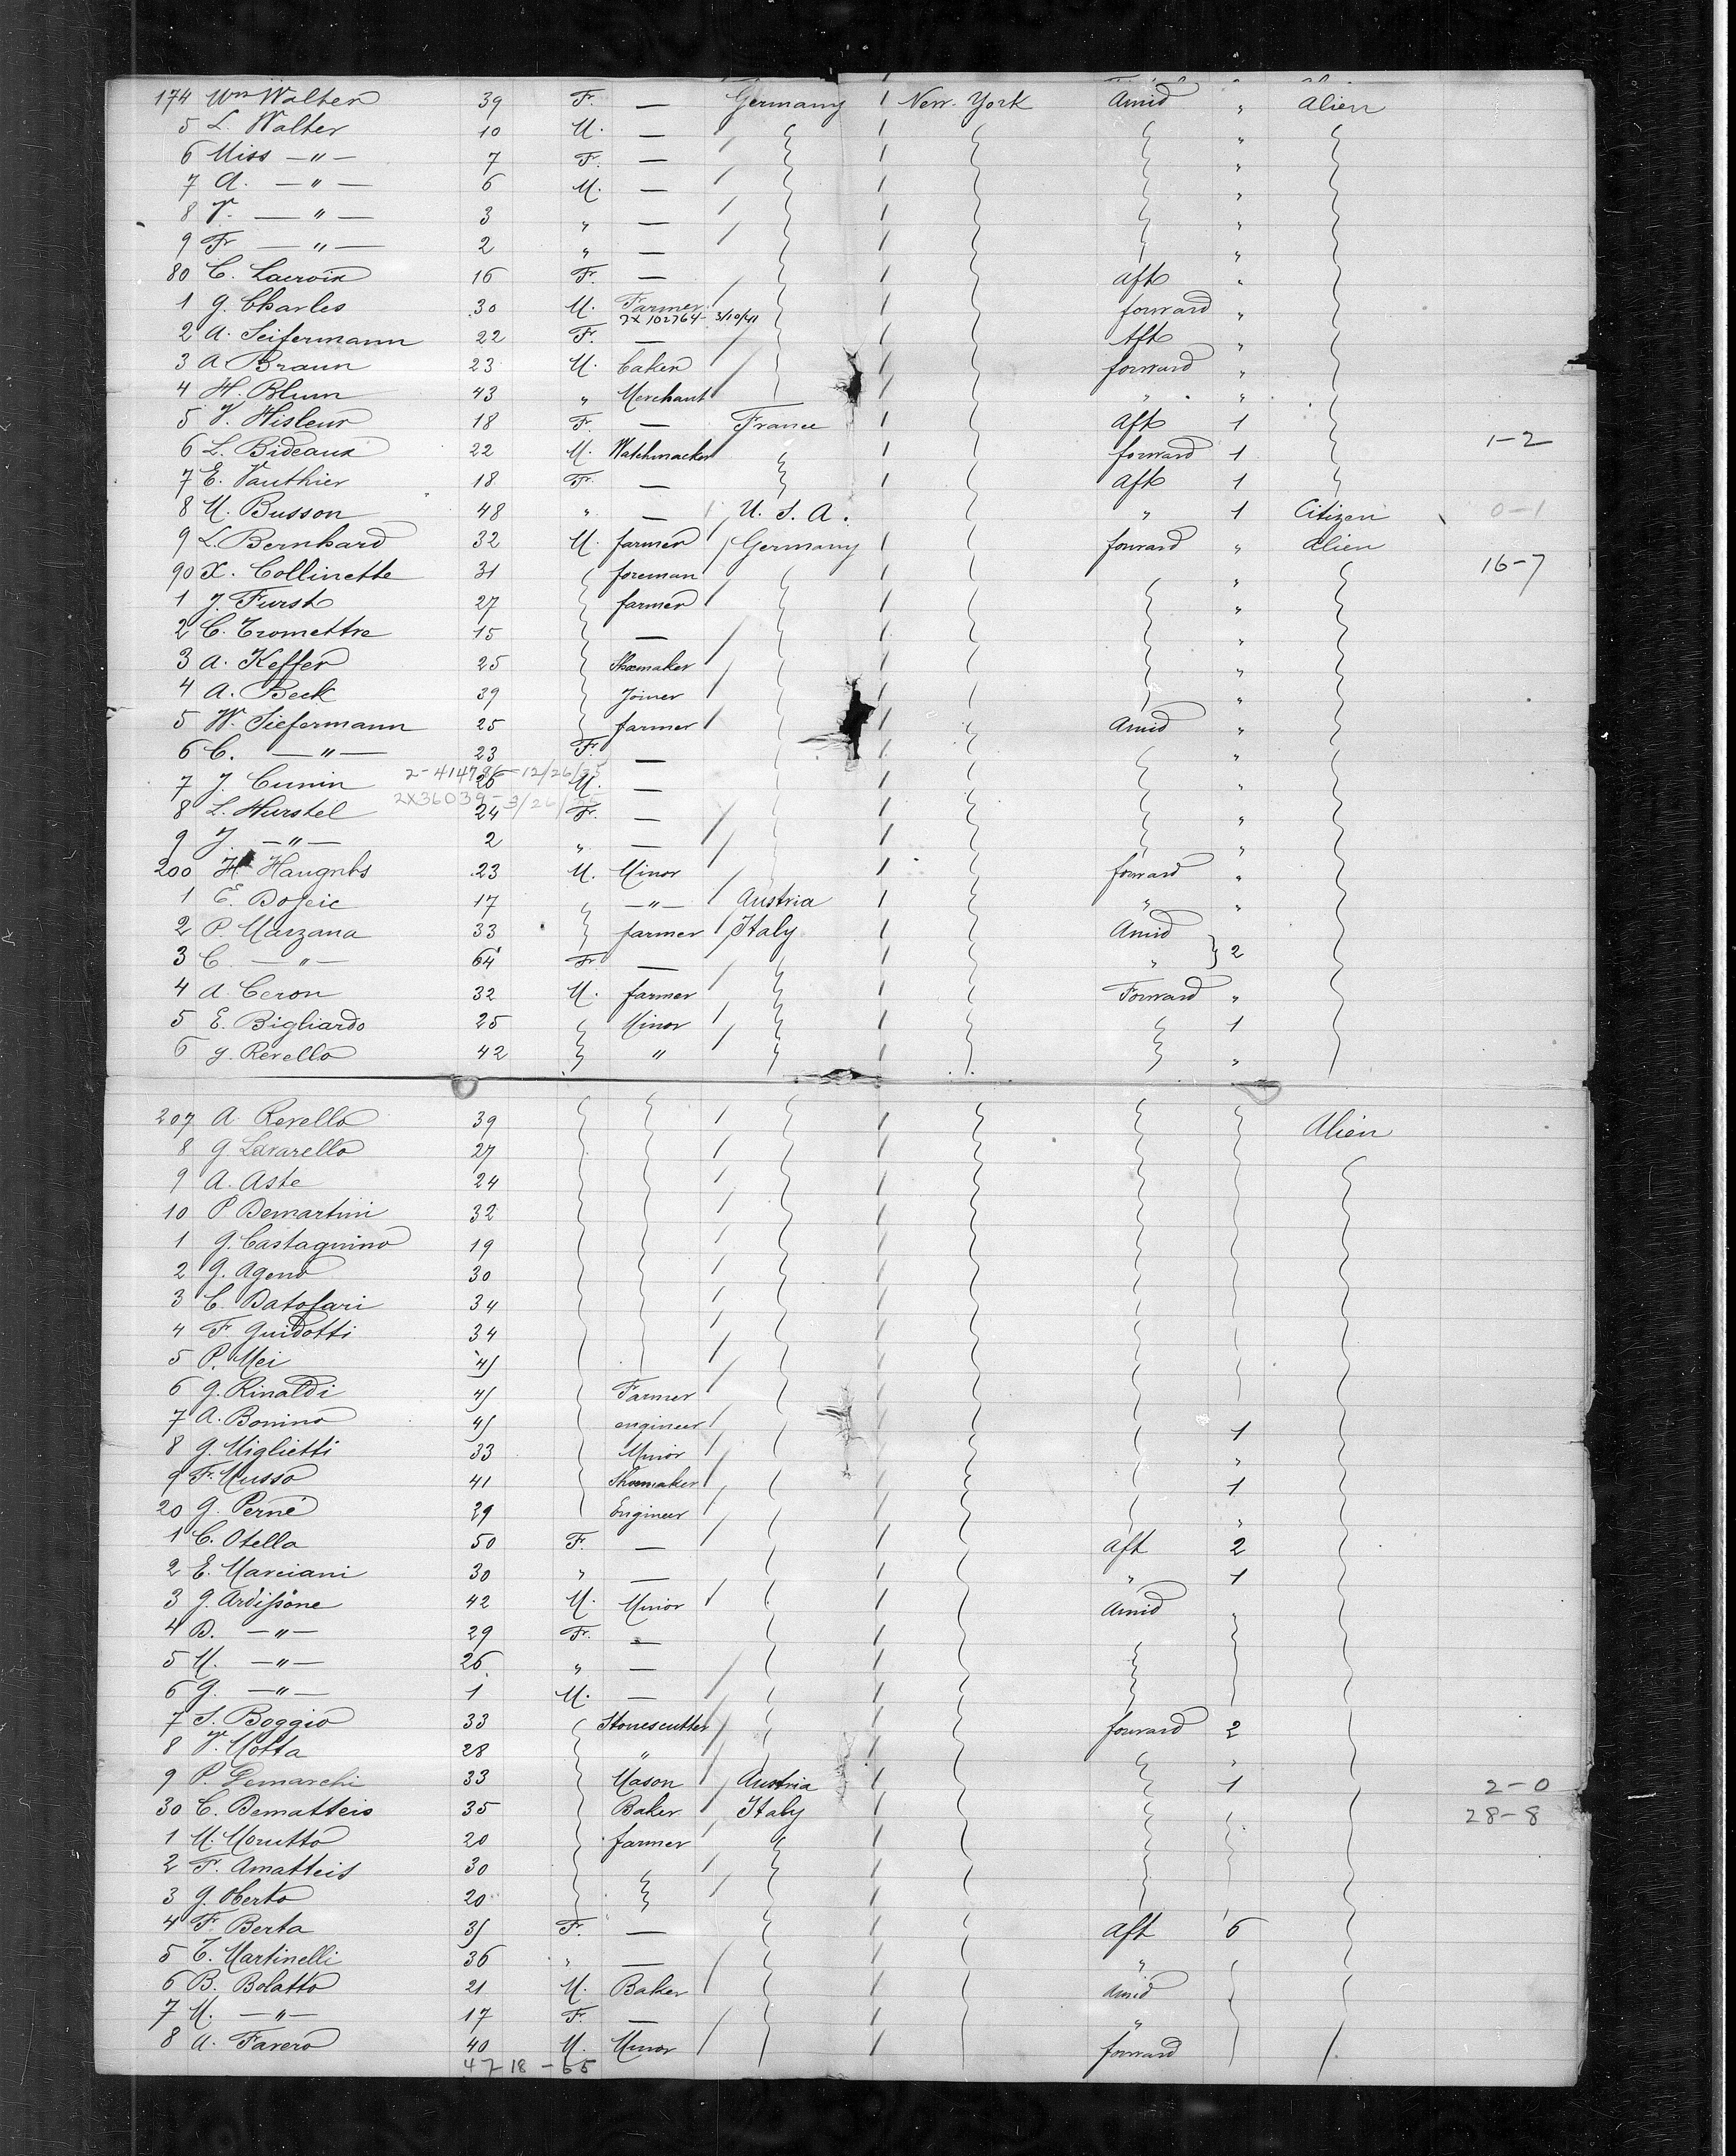 174 Wm Walter 39 Fr. — Germany 1 New-York Amid " Alien
5 L. Walter 10 M. — 1 "
6 Miss — " — 7 Fr. — 1 "
7 A. — " — 6 M. — 1 "
8 V. — " — 3 " — 1 "
9 Fr — " — 2 " — 1 "
80 C. Lacroix 16 Fr. — 1 aft "
1 G. Charles 30 M. Farmer 1 forward "
2x102764- 3/10/41
2 A. Seifermann 22 Fr. — 1 Aft "
3 A. Braun 23 M. baker 1 forward "
4 H. Blum 43 " Merchant 1 " "
5 V. Hisleur 18 Fr. — France 1 Aft 1
6 L. Bideaux 22 M. Watchmacker 1 forward 1 1-2
7 E. Vauthier 18 Fr. — 1 aft 1
8 M. Busson 48 " — U. S. A. " 1 Citizen 0-1
9 L. Bernhard 32 M. farmer Germany 1 forward " alien
90 X. Collinette 31 foreman 1 " 16-7
1 J. Furst 27 farmer 1 "
2 C. Tromettre 15 — 1 "
3 A. Keffer 25 Shoemaker 1 "
4 A. Beck 39 Joiner 1 "
5 W. Siefermann 25 farmer 1 Amid "
6 C. — " — 23 Fr. — 1 "
2-414796-12/26/35
7 J. Cunin 26 M. — 1 "
2X36039-3/26/
8 L. Hurstel 24 Fr. — 1 "
9 J. — " — 2 " — 1 "
200 H. 23 M. Minor 1 forward "
1 E. Dojcic 17 " — " — Austria 1 " "
2 P. Marzana 33 farmer Italy 1 Amid
3 C. — " — 64 Fr — 1 " } 2
4 A. Ceron 32 M. farmer 1 Forward "
5 E. Bigliardo 25 Minor 1 1
6 G. Revello 42 " 1 "
207 A. Revello 39 1 Alien
8 G. Lavarello 27 1
9 A. Aste 24 1
10 P. Demartini 32 1
1 G. Castagnino 19 1
2 G. Ageno 30 1
3 C. Datofari 34 1
4 F. Guidotti 34 1
5 P. Mei 45 1
6 G. Rinaldi 45 Farmer 1
7 A. Bonino 45 engineer 1 1
8 G. Miglietti 33 Minor 1 "
9 F. Musso 41 Shoemaker 1 1
20 G. Perné 29 Engineer 1 "
1 C. Otella 50 F. — 1 aft 2
2 E. Marciani 30 " — 1 " 1
3 G. Ardissone 42 M. Minor 1 Amid "
4 D. — " — 29 Fr. — 1
5 M. — " — 26 " — 1
6 G. — " — 1 M. — 1
7 S. Boggio 33 Stonescutter 1 forward 2
8 V. Motta 28 " 1 "
9 P. Demarchi 33 Mason Austria 1 1 2-0
30 C. Dematteis 35 Baker Italy 1 28-8
1 M. Morutto 20 farmer 1
2 F. Amatteis 30 1
3 G. Oberto 20 1
4 F. Berta 35 F. — 1 aft 6
5 T. Martinelli 36 " — 1 "
6 B. Bolatto 21 M. Baker 1 Amid
7 M. — " — 17 F. — 1 "
8 A. Favero 40 M. Minor 1 forward
47-18-65